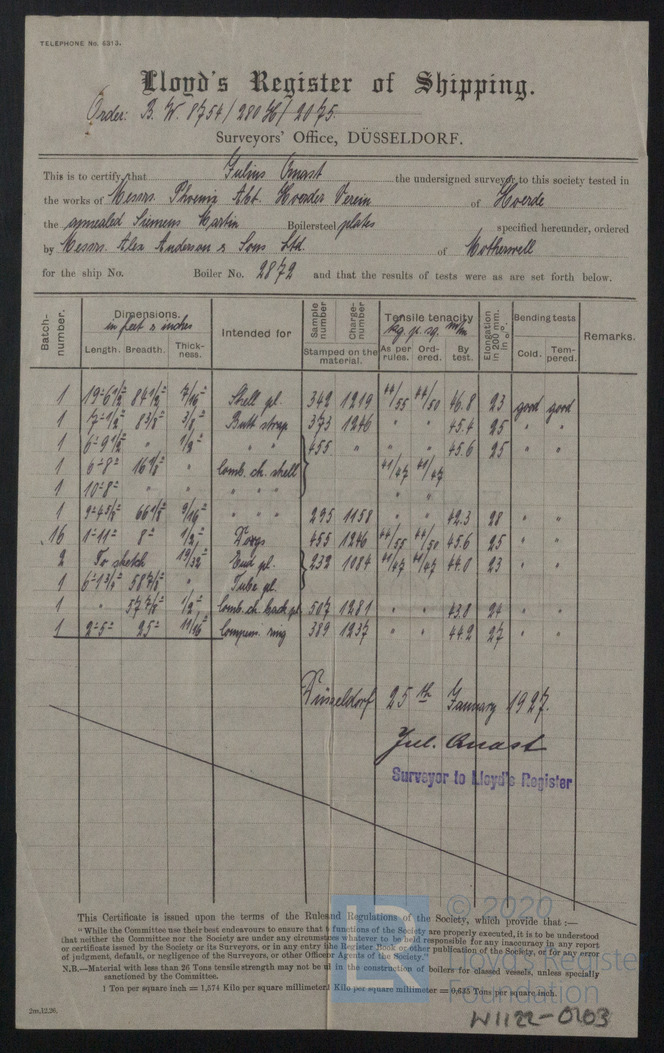 TELEPHONE No. 6313.
Lloyd's Register of Shipping.
Order: B. W. 8754/280H/2075.
Surveyors' Office, DÜSSELDORF.
This is to certify that Julius Quast the undersigned surveyor to this society tested in
the works of Messrs. Phoenix Abt. Hoerder Verein of Hoerde
the annealed Siemens Martin Boilersteel plates specified hereunder, ordered
by Messrs. Alex Anderson & Sons Ltd. of Motherwell
for the ship No. Boiler No. 2872 and that the results of tests were as set forth below.
Batch-number. Dimensions. in feet & inches Length. Breadth. Thick-ness. Intended for Sample number Charge-number Stamped on the material. Tensile tenacity kg. p. sq. m/m As per rules. Ordered. By test. Elongation in 200 mm. in %. Bending tests Cold. Tempered. Remarks.
1 19-6½" 84½" 7/16" Shell pl. 342 1219 44/55 44/50 46.8 23 good good
1 7-½" 8⅜" 3/8" Butt strap 373 1246 " " 45.4 25 " "
1 6-9½" " ½" " " 455 " " " 45.6 25 " "
1 6-8" 16⅛" " Comb. ch. shell 41/47 41/47
1 10-8" " " " " " " "
1 9-4⅝" 66⅛" 9/16" " " " 295 1158 " " 42.3 28 " "
16 1-11" 8" ½" Dogs 455 1246 44/55 44/50 45.6 25 " "
2 To sketch 19/32" End pl. 232 1084 41/47 41/47 44.0 23 " "
1 6-1½" 58⅞" " Tube pl.
1 " 57⅞" ½" Comb. ch. back pl. 507 1281 " " 43.8 24 " "
1 2-5" 25" 11/16" Compens. ring 389 1237 " " 44.2 27 " "
Düsseldorf 25th January 1927.
Jul. Quast
Surveyor to Lloyd's Register
This Certificate is issued upon the terms of the Rules and Regulations of the Society, which provide that :—
"While the Committee use their best endeavours to ensure that functions of the Society are properly executed, it is to be understood
that neither the Committee nor the Society are under any circumstances whatever to be held responsible for any inaccuracy in any report
or certificate issued by the Society or its Surveyors, or in any entry in the Register Book or other publication of the Society, or for any error
of judgment, default, or negligence of the Surveyors, or other Officers or Agents of the Society."
N.B.—Material with less than 26 Tons tensile strength may not be in the construction of boilers for classed vessels, unless specially
sanctioned by the Committee.
1 Ton per square inch = 1,574 Kilo per square millimeter 1 Kilo per square millimeter = 0,635 Tons per square inch.
2m.12.26.
LR
© 2020
Lloyd's Register
Foundation
W1122-0103